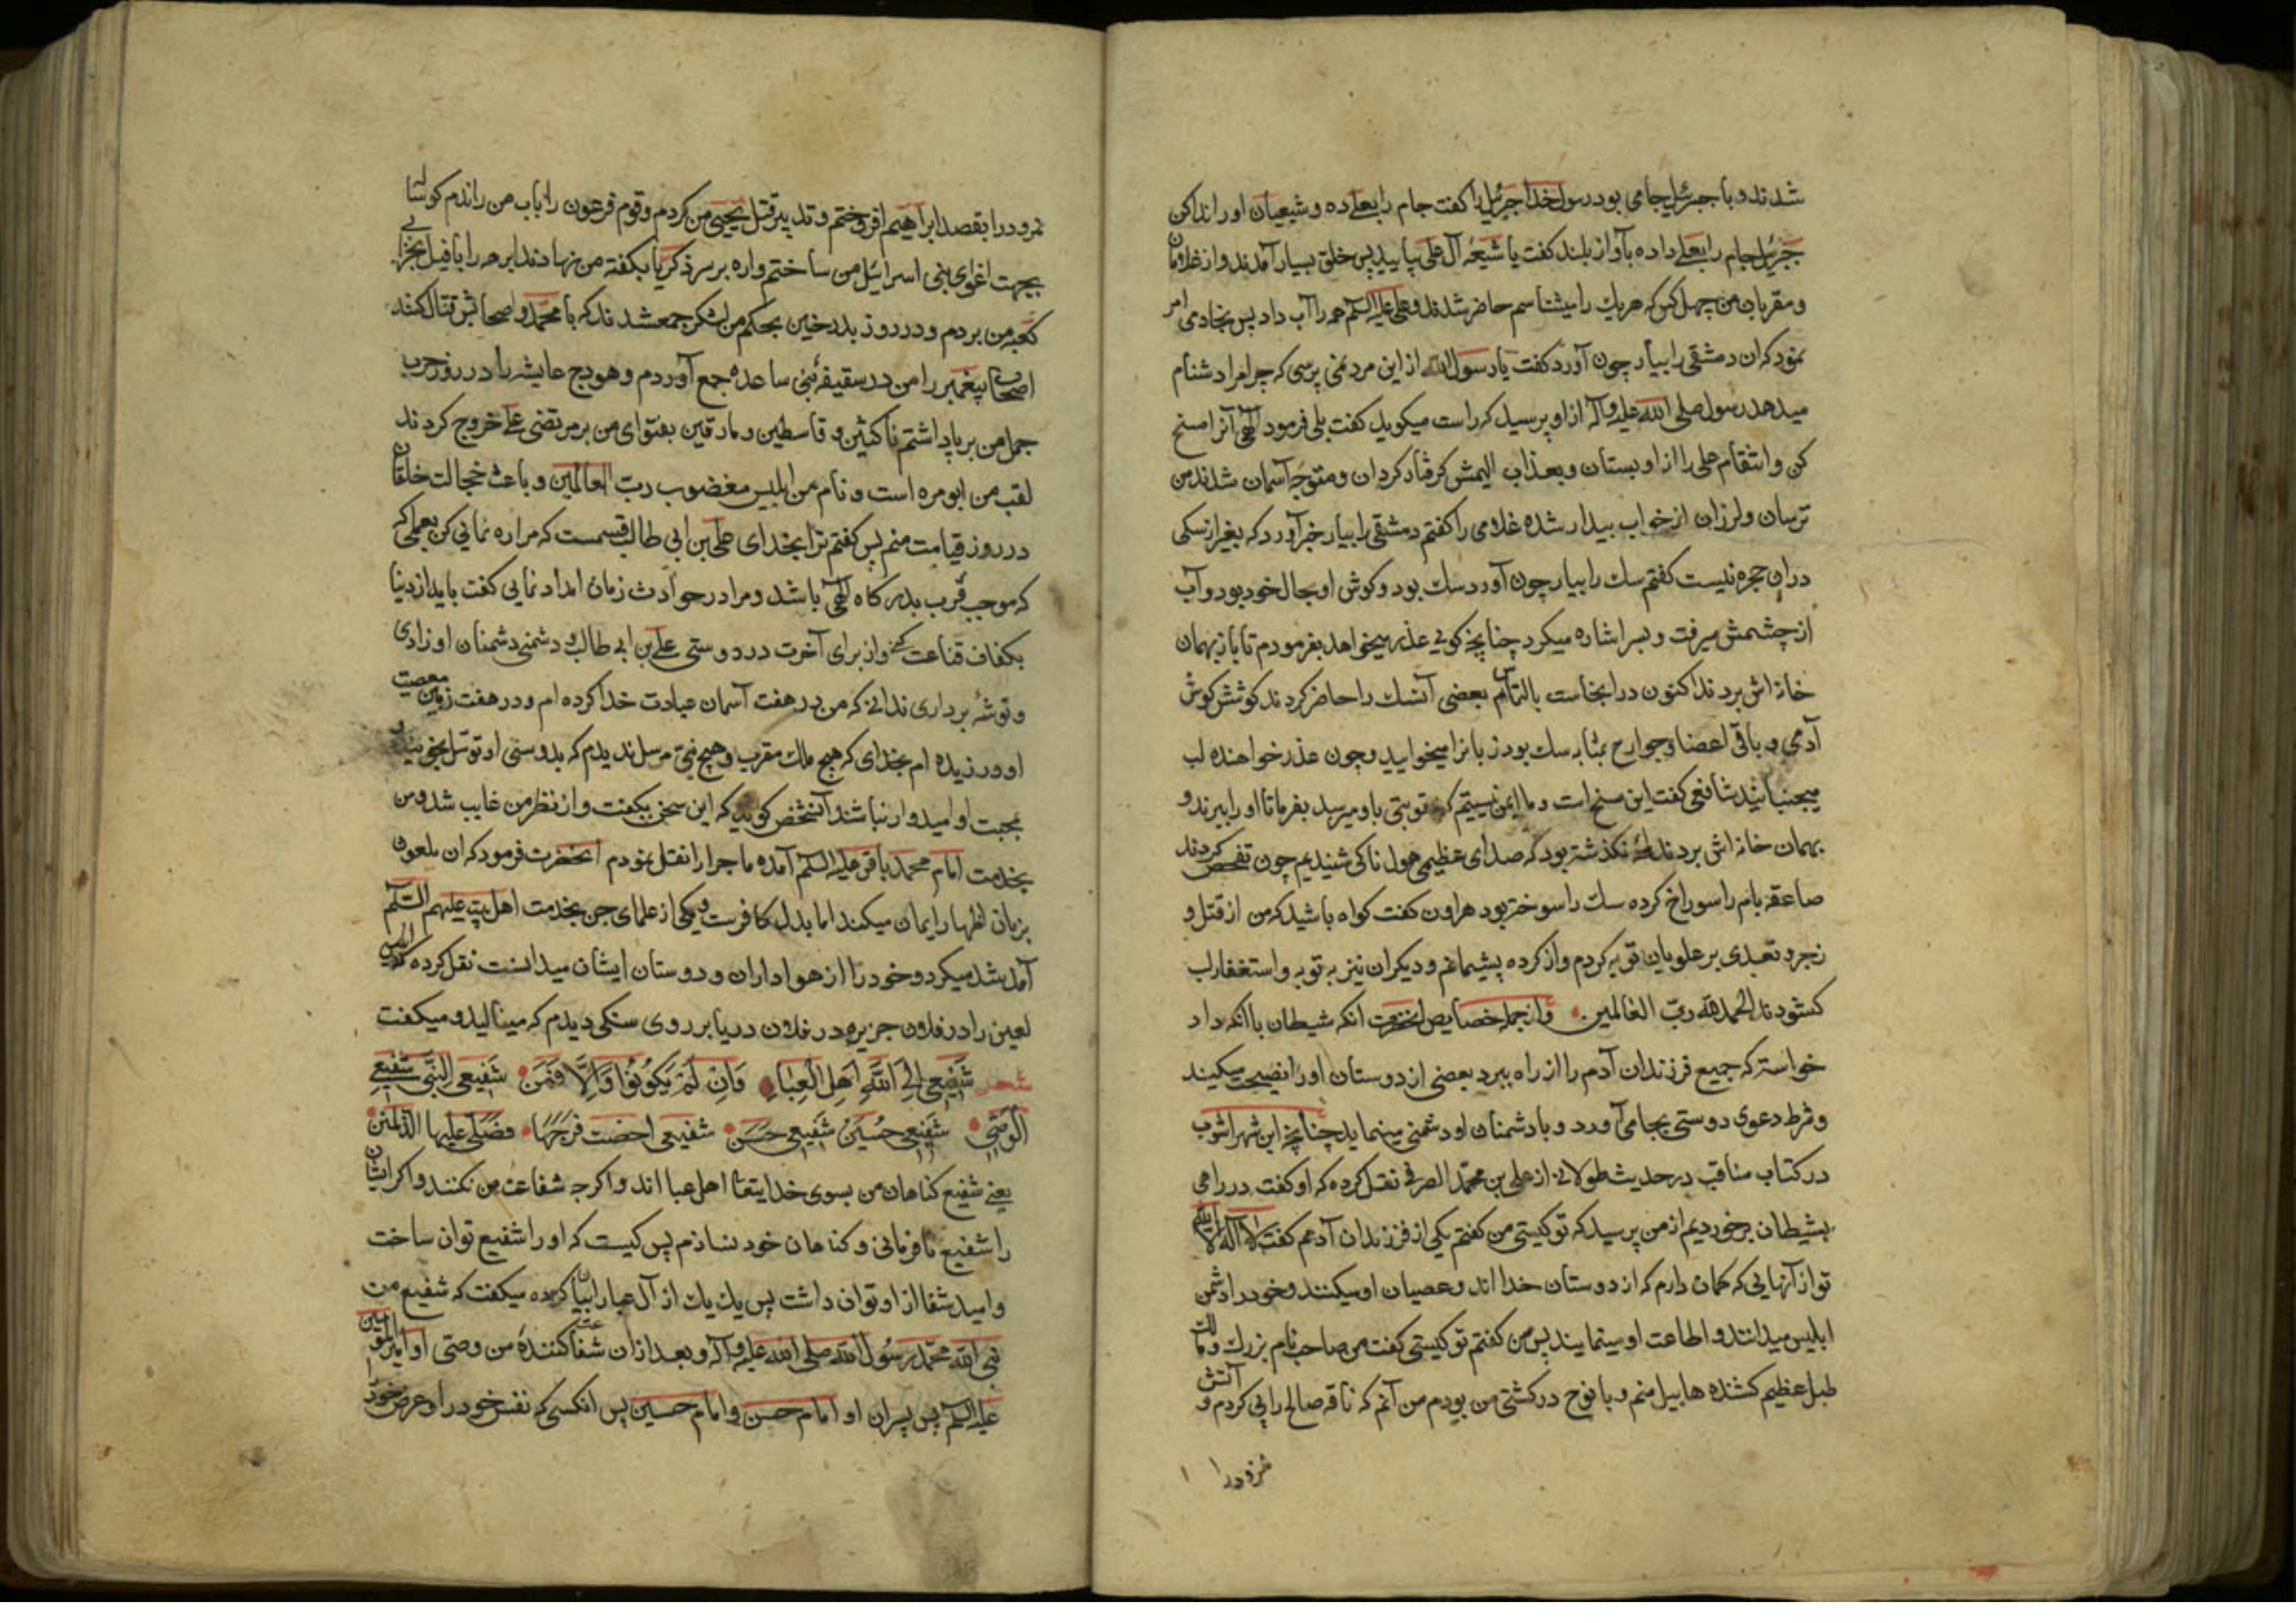 شدند و با جبرئیل جامی بود رسول خدا جبرئیل را کفت جام را بعلی ده و شیعیان او را ندا کن
جبرئیل جام را بعلی داده بآواز بلند کفت یا شیعه آل علی بیایید پس خلق بسیار آمدند و از غلامان
و مقربان من چهل کس که هر یك را میشناسم حاضر شدند و علی علیه السلم همه را آب داد پس بخادمی امر
نمود که ان دمشقی را بیار چون آورد کفت یا رسول الله از این مرد نمی پرسی که چرا مرا دشنام
میدهد رسول صلی الله علیه وآله از او پرسید که راست میکوید کفت بلی فرمود الهی آنرا مسخ
کن و انتقام علی را از او بستان و بعذاب الیمش کرفتار کردان و متوجه آسمان شدند من
ترسان و لرزان از خواب بیدار شده غلامی را کفتم دمشقی را بیار خبر آورد که بغیر از سکی
در ان حجره نیست کفتم سك را بیار چون آورد سك بود و کوش او بحال خود بود و آب
از چشمش میرفت و بسر اشاره میکرد چنانچه کویی عذر میخواهد بفرمودم تا باز بهمان
خانه اش بردند اکنون در اینجاست بالتماس بعضی آنسك را حاضر کردند کوشش کوش
آدمی و باقی اعضا و جوارح بمثابه سك بود زبانرا میخوایید و چون عذر خواهنده لب
میجنبانید شافعی کفت این مسخ است و ما ایمن نیستیم که عقوبتی باو میرسد بفرما تا او را ببرند و
بهمان خانه اش بردند لحظه نکذشته بود که صدای عظیمی هول ناکی شنیدیم چون تفحص کردند
صاعقه بام را سوراخ کرده سك را سوخته بود هرون کفت کواه باشید که من از قتل و
زجر و تعدی بر علویان توبه کردم و از کرده پشیمانم و دیکران نیز به توبه و استغفار لب
کشودند الحمد لله رب العالمین و از جمله خصایص انحضرت انکه شیطان با انکه داد
خواسته که جمیع فرزندان آدم را از راه ببرد بعضی از دوستان او را نصیحت میکند
و شرط دعوی دوستی بجا می آورد و با دشمنان او دشمنی مینماید چنانچه ابن شهر اشوب
در کتاب مناقب در حدیث طولانی از علی بن محمد الصرفی نقل کرده که او کفت در راهی
بشیطان برخوردیم از من پرسید که تو کیستی من کفتم یکی از فرزندان آدمم کفت لا اله الا الله
تو از آنهایی که کمان دارم که از دوستان خدا اند و عصیان او میکنند و خود را دشمن
ابلیس میدانند و اطاعت او مینمایند پس من کفتم تو کیستی کفت من صاحب نام بزرك و مالك
طبل عظیم کشنده هابیل منم و با نوح در کشتی من بودم من آنم که ناقه صالح را پی کردم و آتش
نمرود را
نمرود را بقصد ابراهیم افروختم و تدبیر قتل یحیی من کردم و قوم فرعون را باب من راندم کوساله
بجهت اغوای بنی اسرائیل من ساختم و اره بر سر ذکریا بکفته من نهادند ابرهه را با فیل بخرابی
کعبه من بردم و در روز بدر و حنین بحکم من لشکر جمع شدند که با محمد و اصحابش قتال کنند
اصحاب پیغمبر را من در سقیفه بنی ساعده جمع آوردم و هودج عایشه را در روز حرب
جمل من بر پا داشتم ناکثین و قاسطین و مارقین بفتوای من بر مرتضی علی خروج کردند
لقب من ابو مره است و نام من ابلیس مغضوب رب العالمین و باعث خجالت خلقان
در روز قیامت منم پس کفتم ترا بخدای علی بن ابی طالب قسمست که مرا ره نمایی کن بعملی که
که موجب قرب بدرکاه الهی باشد و مرا در حوادث زمان امداد نمایی کفت باید از دنیا
بکفاف قناعت کنی و از برای آخرت در دوستی علی بن ابی طالب و دشمنی دشمنان او زادی
و توشه برداری ندانی که من در هفت آسمان عبادت خدا کرده ام و در هفت زمین معصیت
او ورزیده ام بخدای که هیچ ملك مقرب و هیچ نبی مرسل ندیدم که بدوستی او توسل نجوید و
بمحبت او امیدوار نباشد آنشخص کوید که این سخن بکفت و از نظر من غایب شد و من
بخدمت امام محمد باقر علیه السلم آمده ماجرا را نقل نمودم انحضرت فرمود که ان ملعون
بزبان اظهار ایمان میکند اما بدل کافرست و یکی از علمای جن بخدمت اهل بیت علیهم السلم
آمد شد میکرد و خود را از هواداران و دوستان ایشان میدانست نقل کرده که ابلیس
لعین را در فلان جزیره در فلان دریا بر روی سنکی دیدم که مینالید و میکفت
شعر شفیعی الی الله اهل العباء وان لم یکونوا والا فمن شفیعی النبی شفیعی
الوصی شفیعی حسین شفیعی حسن شفیعی احصنت فرجها فصلی علیها الذالمنن
یعنی شفیع کناهان من بسوی خدایتعا اهل عبا اند و اکرچه شفاعت من نکنند و اکر ایشان
را شفیع نافرمانی و کناهان خود نسازم پس کیست که او را شفیع توان ساخت
و امید شفا از او توان داشت پس یك یك از آل عبا را بیان کرده میکفت که شفیع من
نبی الله محمد رسول الله صلی الله علیه وآله و بعد از ان شفاعت کننده من وصی او امیرالمؤمنین
علیه السلم پس پسران او امام حسن و امام حسین پس انکسی که نفس خود را و عرض خود را